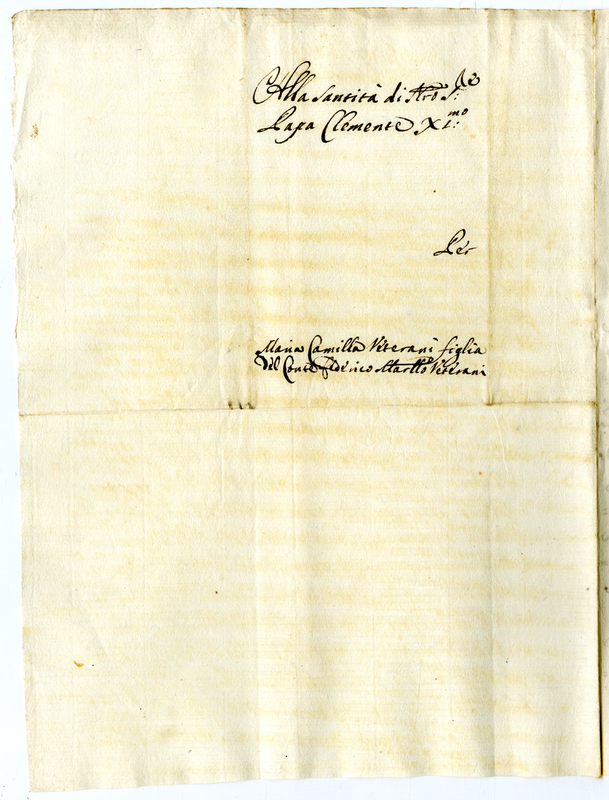 Alla Santità di Nrõ S.re
Papa Clemente XI.mo
Per
Maria Camilla Veterani figlia
del Conte Federico Marllo Veterani